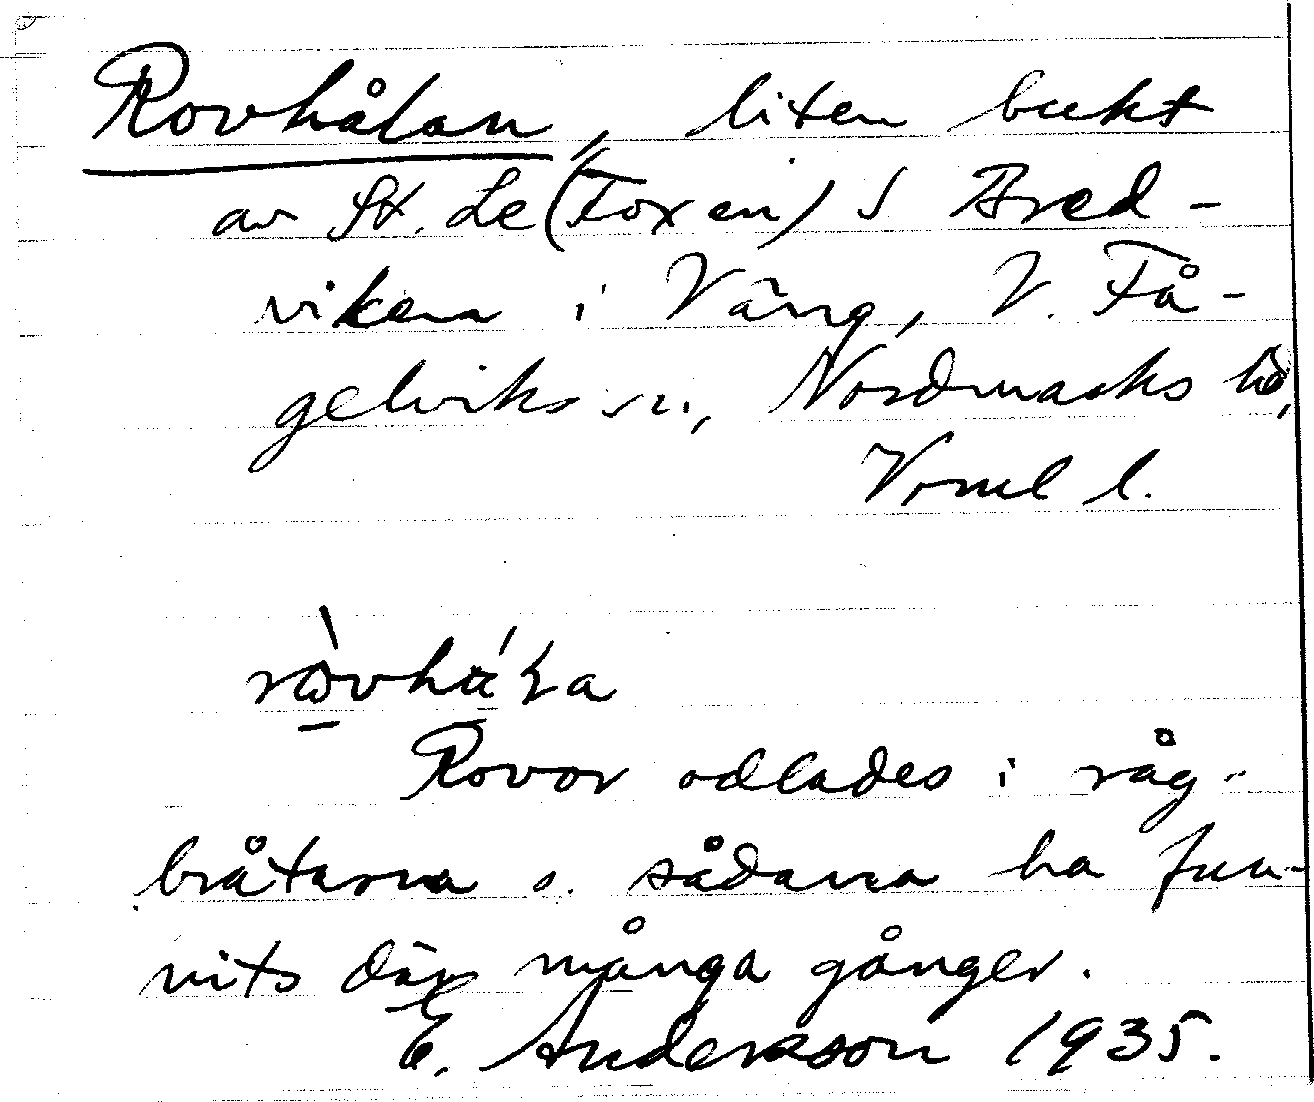 Rovhålan, liten bukt
av St. Le (Foxen) S Bred-
viken i Väng, V. Få-
gelviks sn., Nordmarks hd,
Vrml l.
Rovor odlades i råg-
bråtarna o. sådana ha fun-
nits där många gånger.
E. Andersson 1935.